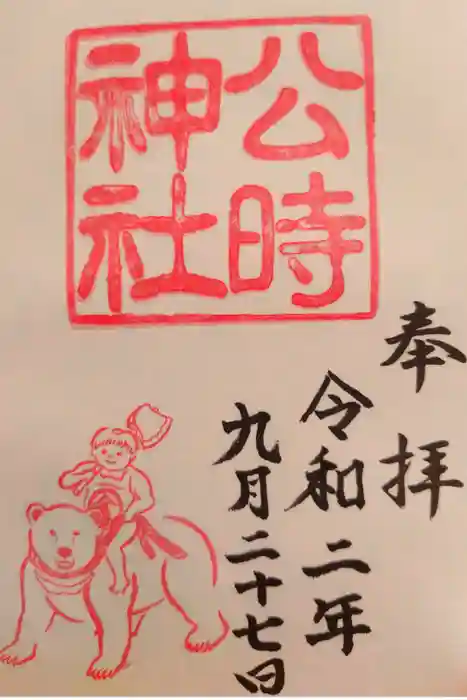 公時
神社
奉拝
令和二年
九月二十七日